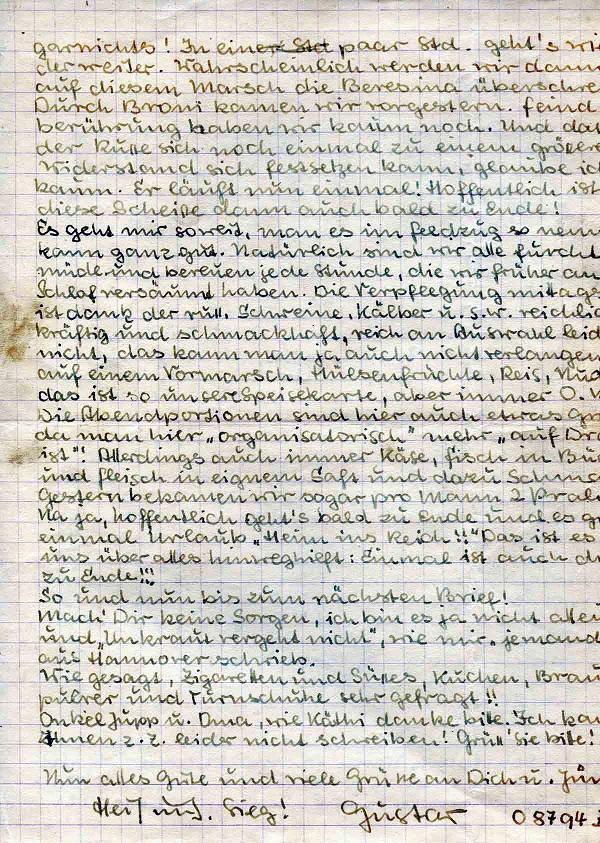 garnichts! In einer Std paar Std. geht's wi
der weiter. Wahrscheinlich werden wir dann
auf diesem Marsch die Beresina überschre
Durch Broni kamen wir vorgestern. feind
berührung haben wir kaum noch. Und daß
der Russe sich noch einmal zu einem größere
Widerstand sich festsetzen kann, glaube ic
kaum. Er läuft nun einmal! Hoffentlich ist
diese Scheiße dann auch bald zu Ende!
Es geht mir soweit, man es im feldzug so nenn
kann ganz gut. Natürlich sind wir alle furcht
müde und bereuen jede Stunde, die wir früher an
Schlaf versäumt haben. Die Verpflegung mittags
ist dank der russ. Schweine, Kälber u. s. w. reichlic
kräftig und schmackhaft, reich an Auswahl leid
nicht, das kann man ja auch nicht verlangen
auf einem Vormarsch, Hülsenfrüchte, Reis, Nud
das ist so unsere Speisekarte, aber immer O.
Die Abendportionen sind hier auch etwas Grö
da man hier „organisatorisch" mehr „auf Dra
ist"! Allerdings auch immer Käse, fisch in Bü
und fleisch in eignem Saft und dazu Schma
Gestern bekamen wir sogar pro Mann 2 Prali
Na ja, hoffentlich geht's bald zu Ende und es g
einmal Urlaub „Heim ins Reich!!" Das ist es
uns über alles hinweghilft: Einmal ist auch d
zu Ende!!!
So und nun bis zum nächsten Brief!
Mach' Dir keine Sorgen, ich bin es ja nicht allei
und „Unkraut vergeht nicht", wie mir jemand
aus Hannover schrieb.
Wie gesagt, Zigaretten und Süßes, Kuchen, Brau
pulver und Turnschuhe sehr gefragt!!
Onkel Jupp u. Oma, wie Käthi danke bitte. Ich ka
Ihnen z. Z. leider nicht schreiben! Grüß' sie bitte!
Nun alles Gute und viele Grüße an Dich u. Jür
Heil und Sieg! Gustav 08794